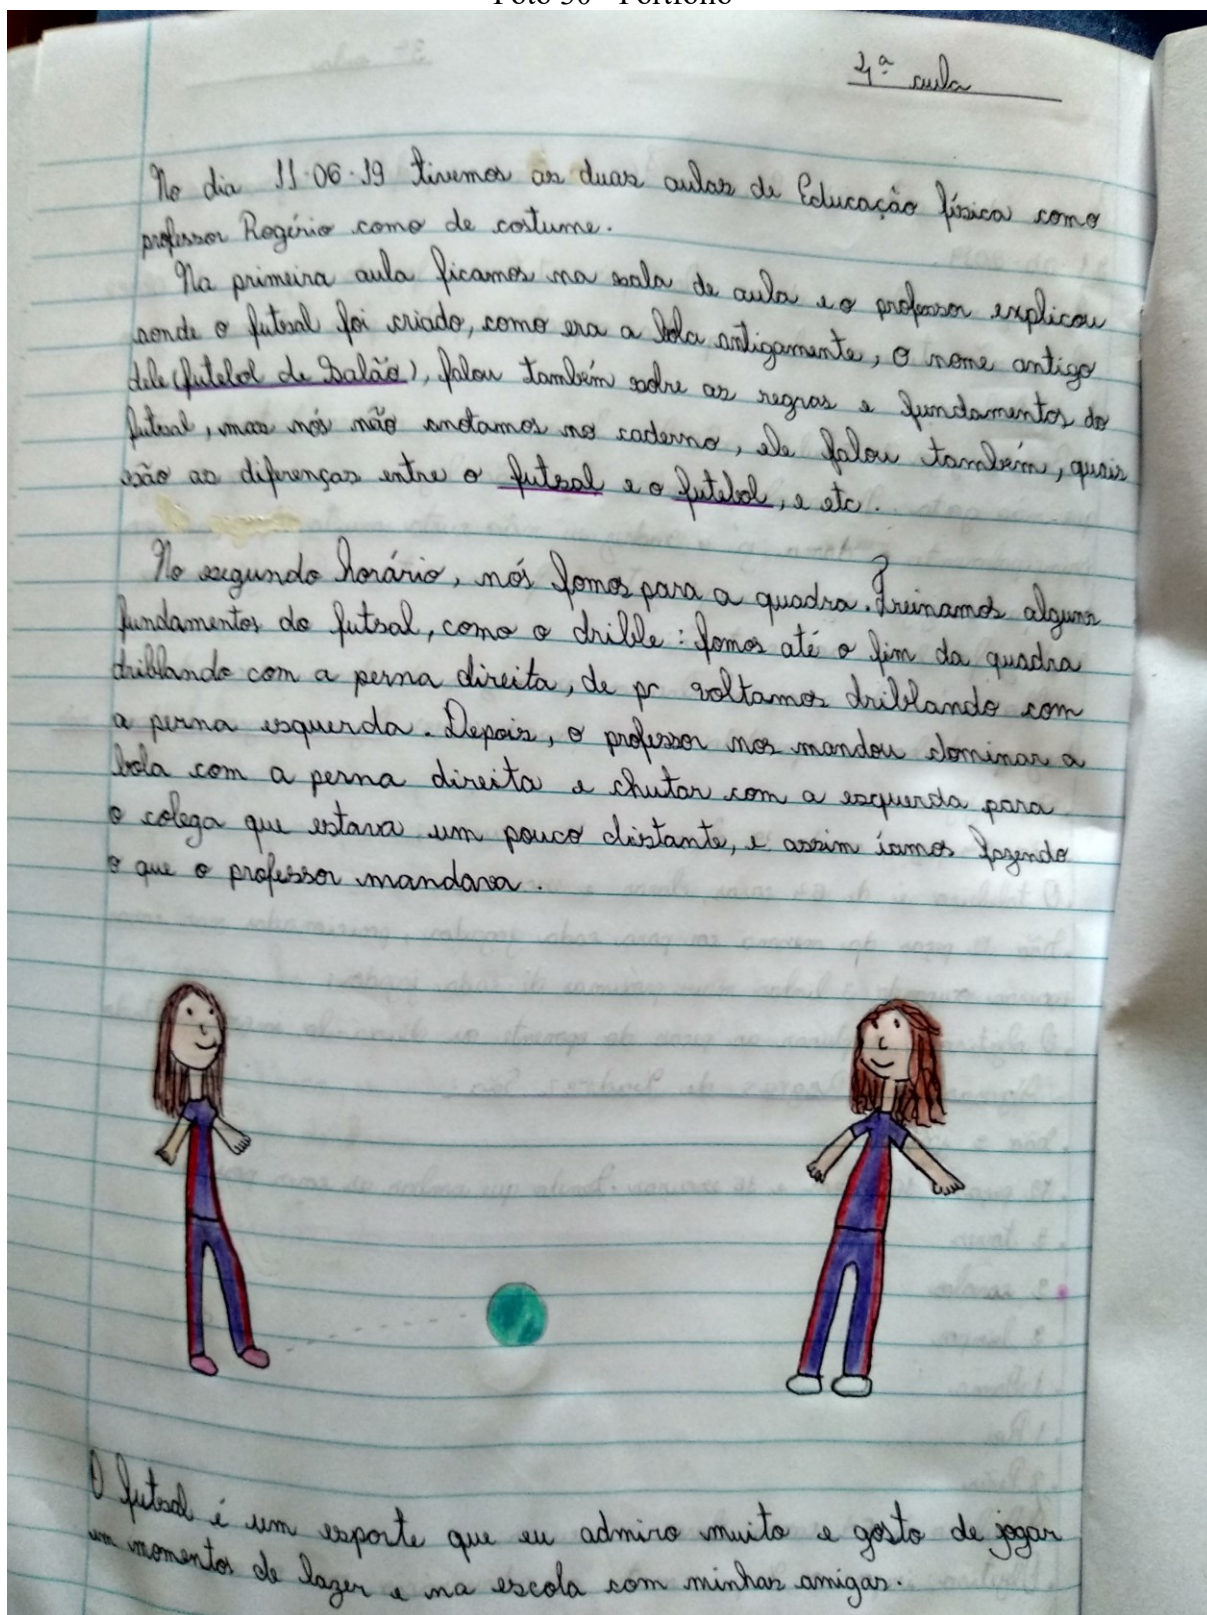 4ª aula
No dia 11.06.19 tivemos as duas aulas de Educação física como
professor Rogério como de costume.
Na primeira aula ficamos na sala de aula e o professor explicou
aonde o futsal foi criado, como era a bola antigamente, o nome antigo
dele (futebol de Salão), falou também sobre as regras e fundamentos do
futsal, mas nós não anotamos no caderno, ele falou também, quais
são as diferenças entre o futsal e o futebol, e etc.
No segundo horário, nós fomos para a quadra. Treinamos alguns
fundamentos do futsal, como o drible: fomos até o fim da quadra
driblando com a perna direita, de po voltamos driblando com
a perna esquerda. Depois, o professor nos mandou dominar a
bola com a perna direita e chutar com a esquerda para
o colega que estava um pouco distante, e assim íamos fazendo
o que o professor mandava.
O futsal é um esporte que eu admiro muito e gosto de jogar
em momentos de lazer e na escola com minhas amigas.